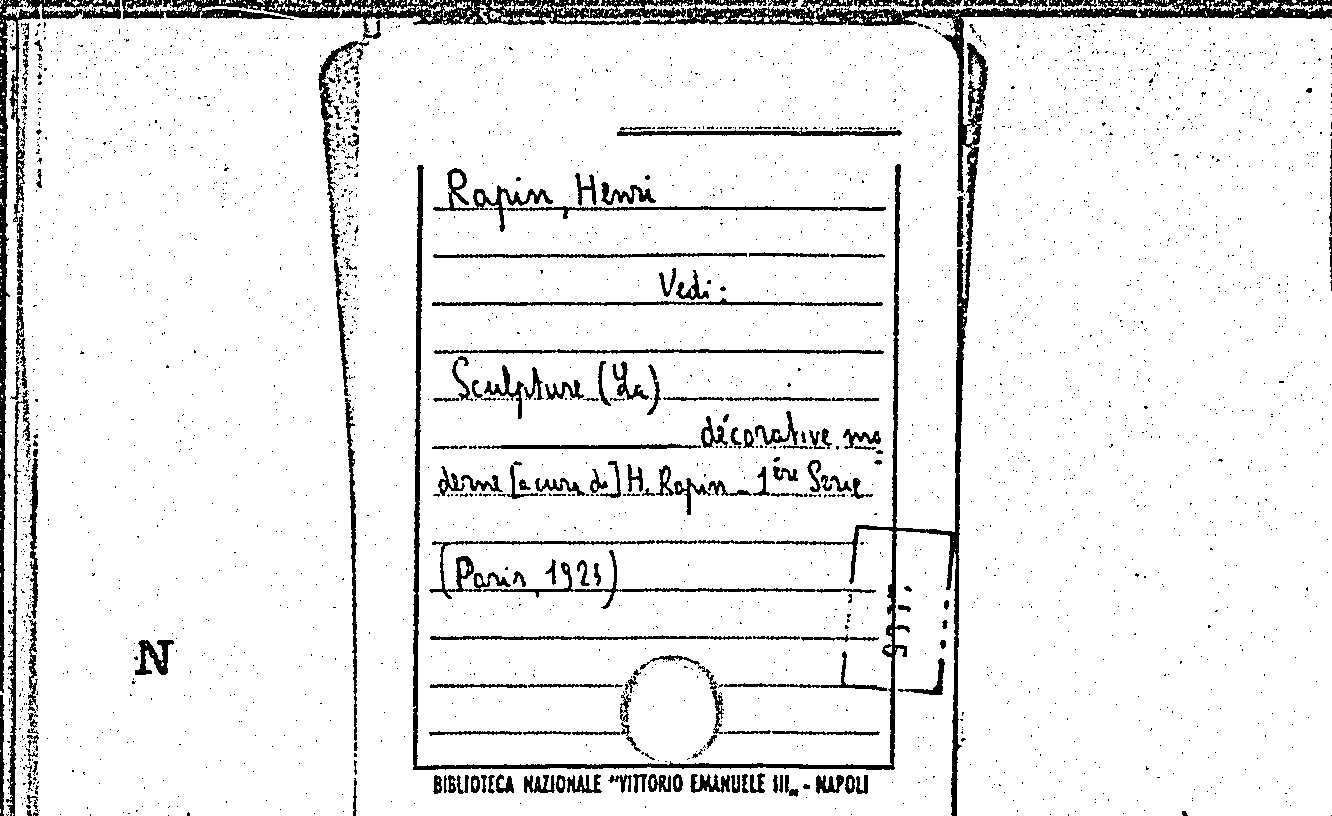 Rapin, Henri
Vedi:
Sculpture (La)
décorative mo
derne [a cura di] H. Rapin - 1ère Série
(Paris, 1925)
N
BIBLIOTECA NAZIONALE "VITTORIO EMANUELE III„ - NAPOLI